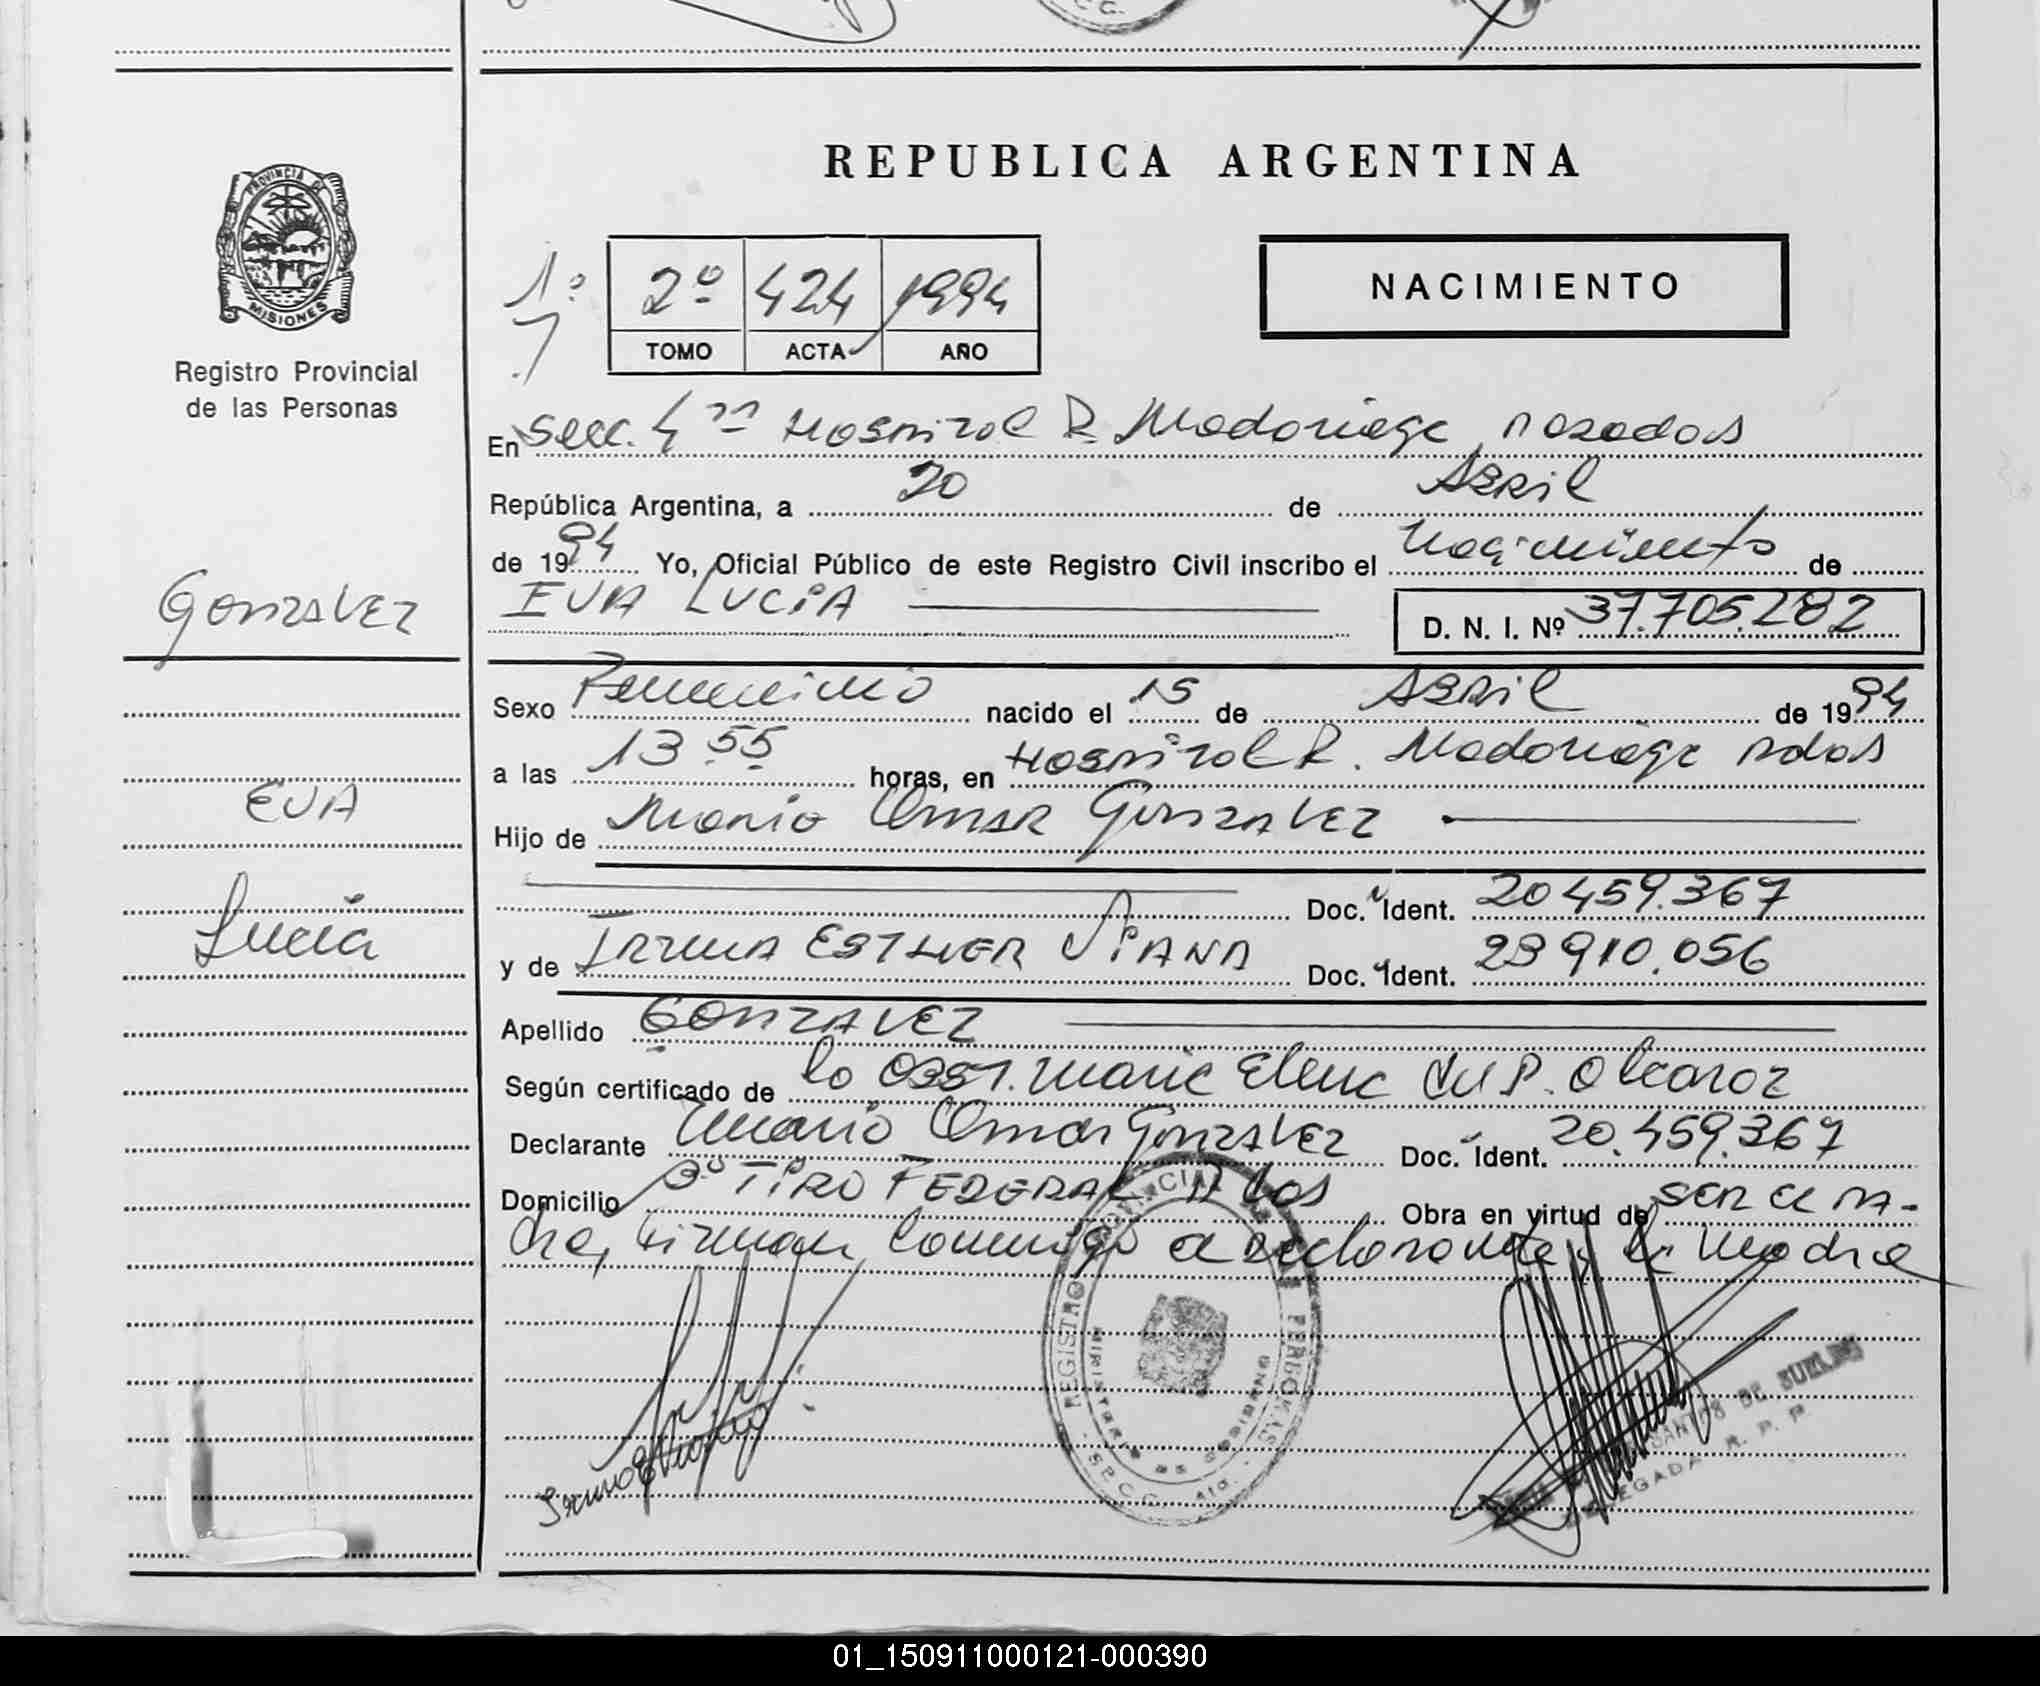 REPUBLICA ARGENTINA
PROVINCIA DE MISIONES
Registro Provincial
de las Personas
1º
2º 424 1994
TOMO ACTA AÑO
NACIMIENTO
En Secc. 4ta Hospital R. Madariaga, Posadas
República Argentina, a 20 de Abril
de 1994 Yo, Oficial Público de este Registro Civil inscribo el Nacimiento de
EVA LUCIA
D. N. I. Nº 37.705.282
Gonzalez
EVA
Lucia
Sexo Femenino nacido el 15 de Abril de 1994
a las 13.55 horas, en Hospital R. Madariaga Pdas
Hijo de Mario Omar Gonzalez
Doc. Ident. 20.459.367
y de IRMA ESTHER Doc. Ident. 23.910.056
Apellido GONZALEZ
Según certificado de la Obst. Maria Elena del P. Alcaraz
Declarante Mario Omar Gonzalez Doc. Ident. 20.459.367
Domicilio Bº TIRO FEDERAL Pdas Obra en virtud de ser el pa-
dre, firman conmigo el declarante y la Madre
REGISTRO PROVINCIAL DE LAS PERSONAS
MINISTERIO DE GOBIERNO
SECC. 4ta.
SANTOS DE
DELEGADA R. P. P.
01_150911000121-000390